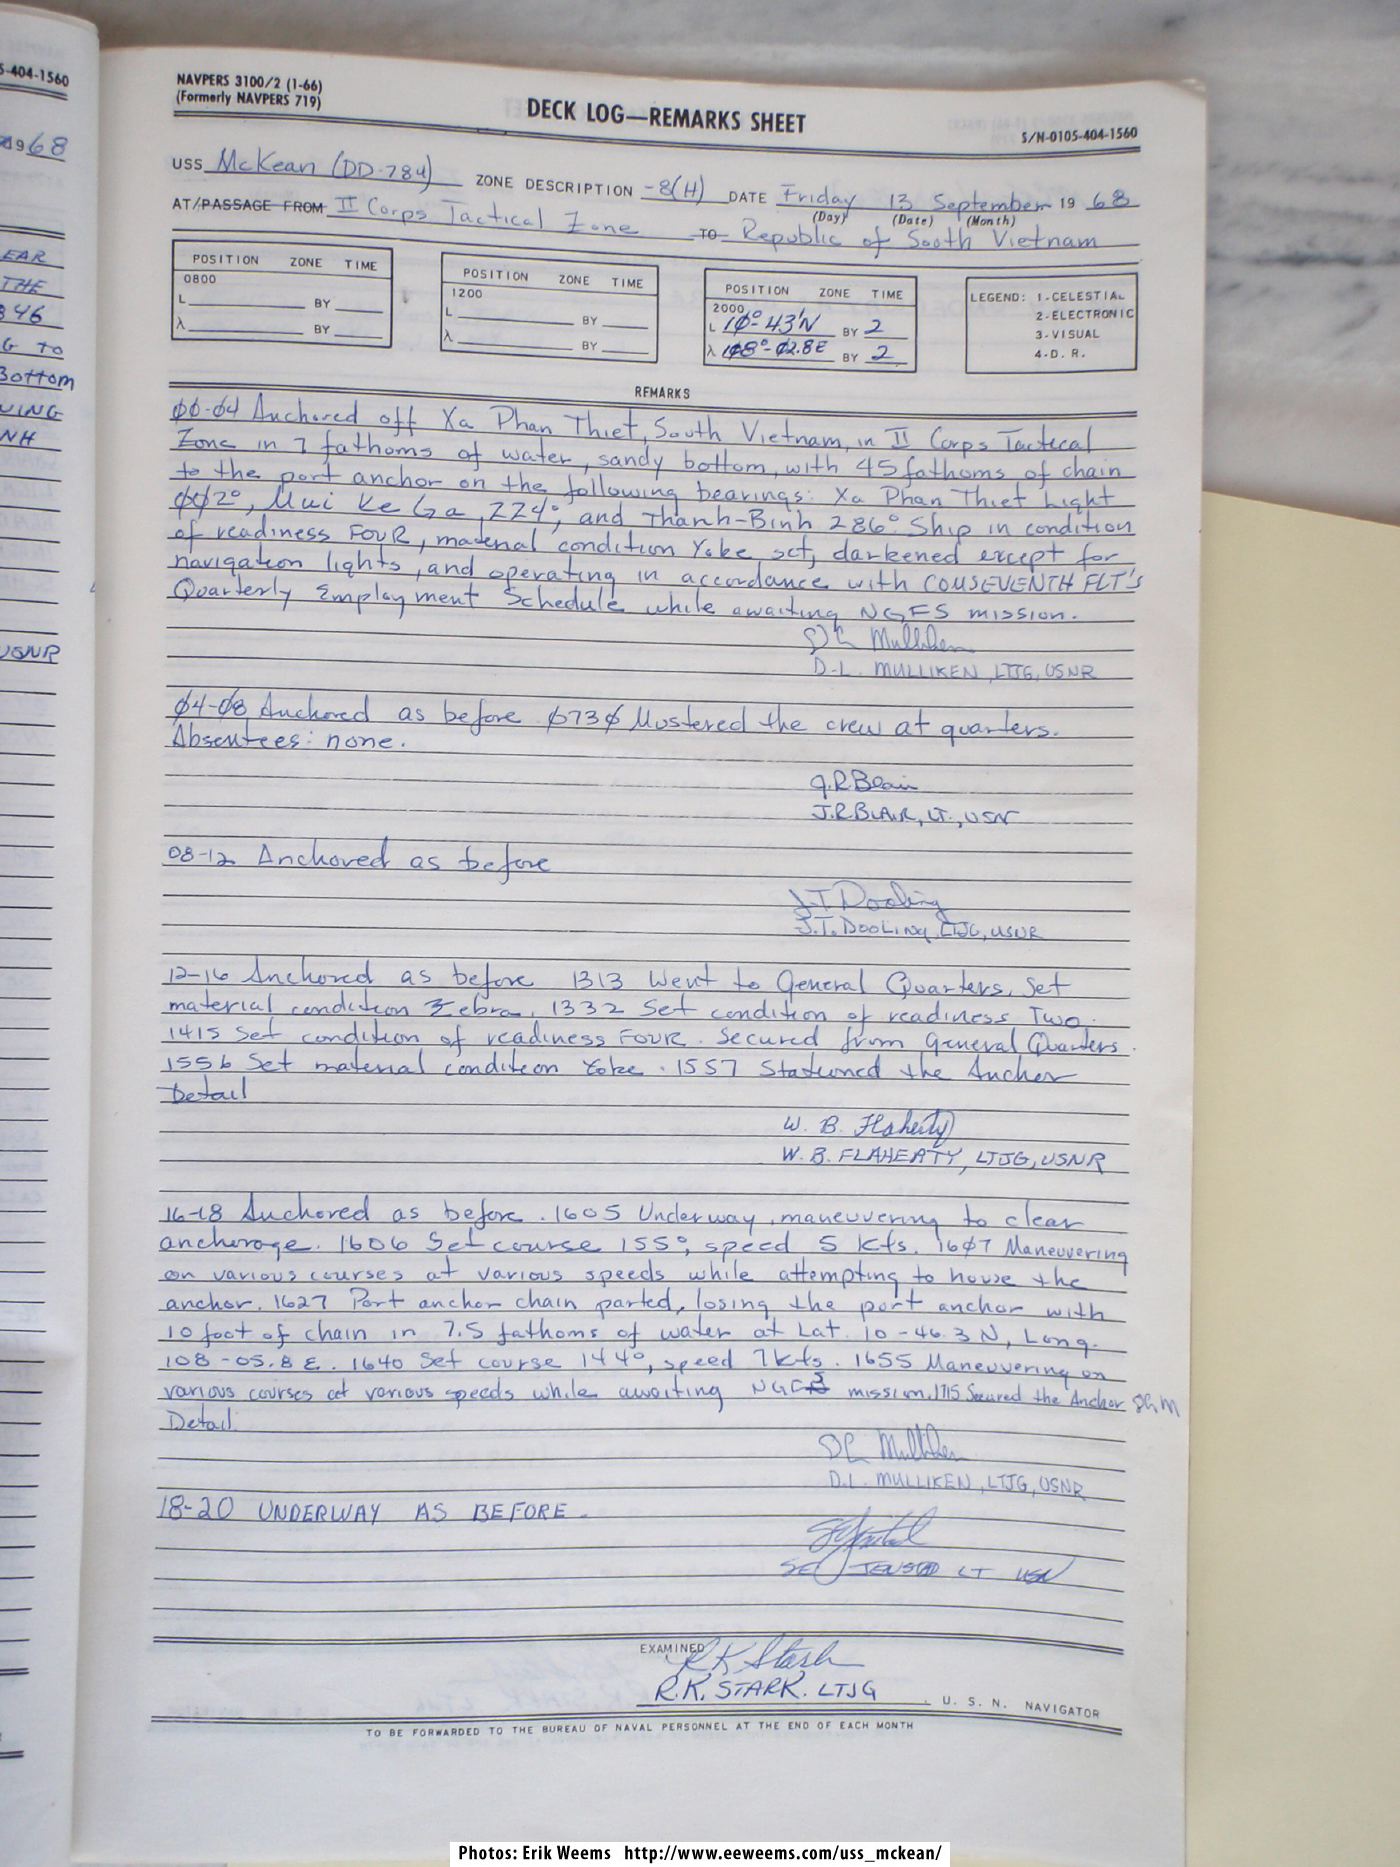 5-404-1560
1968
EAR
THE
346
G TO
Bottom
VING
NH
USNR
NAVPERS 3100/2 (1-66)
(Formerly NAVPERS 719)
DECK LOG—REMARKS SHEET
S/N-0105-404-1560
USS McKean (DD-784) ZONE DESCRIPTION -8(H) DATE Friday 13 September 19 68
(Day) (Date) (Month)
AT/PASSAGE FROM II Corps Tactical Zone TO Republic of South Vietnam
POSITION ZONE TIME
0800
L BY
λ BY
POSITION ZONE TIME
1200
L BY
λ BY
POSITION ZONE TIME
2000
L 10°-43'N BY 2
λ 108°-02.8E BY 2
LEGEND: 1-CELESTIAL
2-ELECTRONIC
3-VISUAL
4-D. R.
REMARKS
00-04 Anchored off Xa Phan Thiet, South Vietnam, in II Corps Tactical
Zone in 7 fathoms of water, sandy bottom, with 45 fathoms of chain
to the port anchor on the following bearings: Xa Phan Thiet Light
002°, Mui Ke Ga, 224°, and Thanh-Binh 286°. Ship in condition
of readiness FOUR, material condition Yoke set, darkened except for
navigation lights, and operating in accordance with COMSEVENTH FLT's
Quarterly Employment Schedule while awaiting NGFS mission.
DL Mulliken
D.L. MULLIKEN, LTJG, USNR
04-08 Anchored as before. 0730 Mustered the crew at quarters.
Absentees: none.
J.R.Blair
J.R.BLAIR, LT., USN
08-12 Anchored as before
J.T. Dooling
J.T. DOOLING, LTJG, USNR
12-16 Anchored as before 1313 Went to General Quarters, Set
material condition Zebra. 1332 Set condition of readiness Two.
1415 Set condition of readiness FOUR. Secured from General Quarters.
1556 Set material condition Yoke. 1557 Stationed the Anchor
Detail
W. B. Flaherty
W. B. FLAHEATY, LTJG, USNR
16-18 Anchored as before. 1605 Underway, maneuvering to clear
anchorage. 1606 Set course 155°, speed 5 kts. 1607 Maneuvering
on various courses at various speeds while attempting to house the
anchor. 1627 Port anchor chain parted, losing the port anchor with
10 foot of chain in 7.5 fathoms of water at Lat. 10-46.3 N, Long.
108-05.8 E. 1640 Set course 144°, speed 7 kts. 1655 Maneuvering on
various courses at various speeds while awaiting NGFS mission. 1715 Secured the Anchor DLM
Detail.
DL Mulliken
D.L. MULLIKEN, LTJG, USNR
18-20 UNDERWAY AS BEFORE.
LT USN
EXAMINED
R K Stark
R.K. STARK. LTJG U. S. N. NAVIGATOR
TO BE FORWARDED TO THE BUREAU OF NAVAL PERSONNEL AT THE END OF EACH MONTH
Photos: Erik Weems http://www.eeweems.com/uss_mckean/